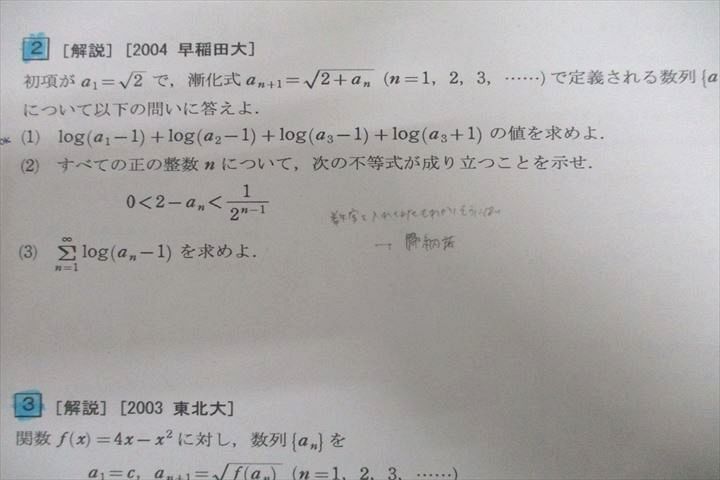 2 [解説] [2004 早稲田大]
初項が a₁=√2 で, 漸化式 aₙ₊₁=√(2+aₙ) (n=1, 2, 3, ……) で定義される数列 {a
について以下の問いに答えよ.
(1) log(a₁−1)+log(a₂−1)+log(a₃−1)+log(a₃+1) の値を求めよ.
(2) すべての正の整数 n について, 次の不等式が成り立つことを示せ.
0<2−aₙ<1/2ⁿ⁻¹
→ 帰納法
(3) ∑_{n=1}^{∞} log(aₙ−1) を求めよ.
3 [解説] [2003 東北大]
関数 f(x)=4x−x² に対し, 数列 {aₙ} を
a₁=c, aₙ₊₁=√f(aₙ) (n=1, 2, 3, ……)